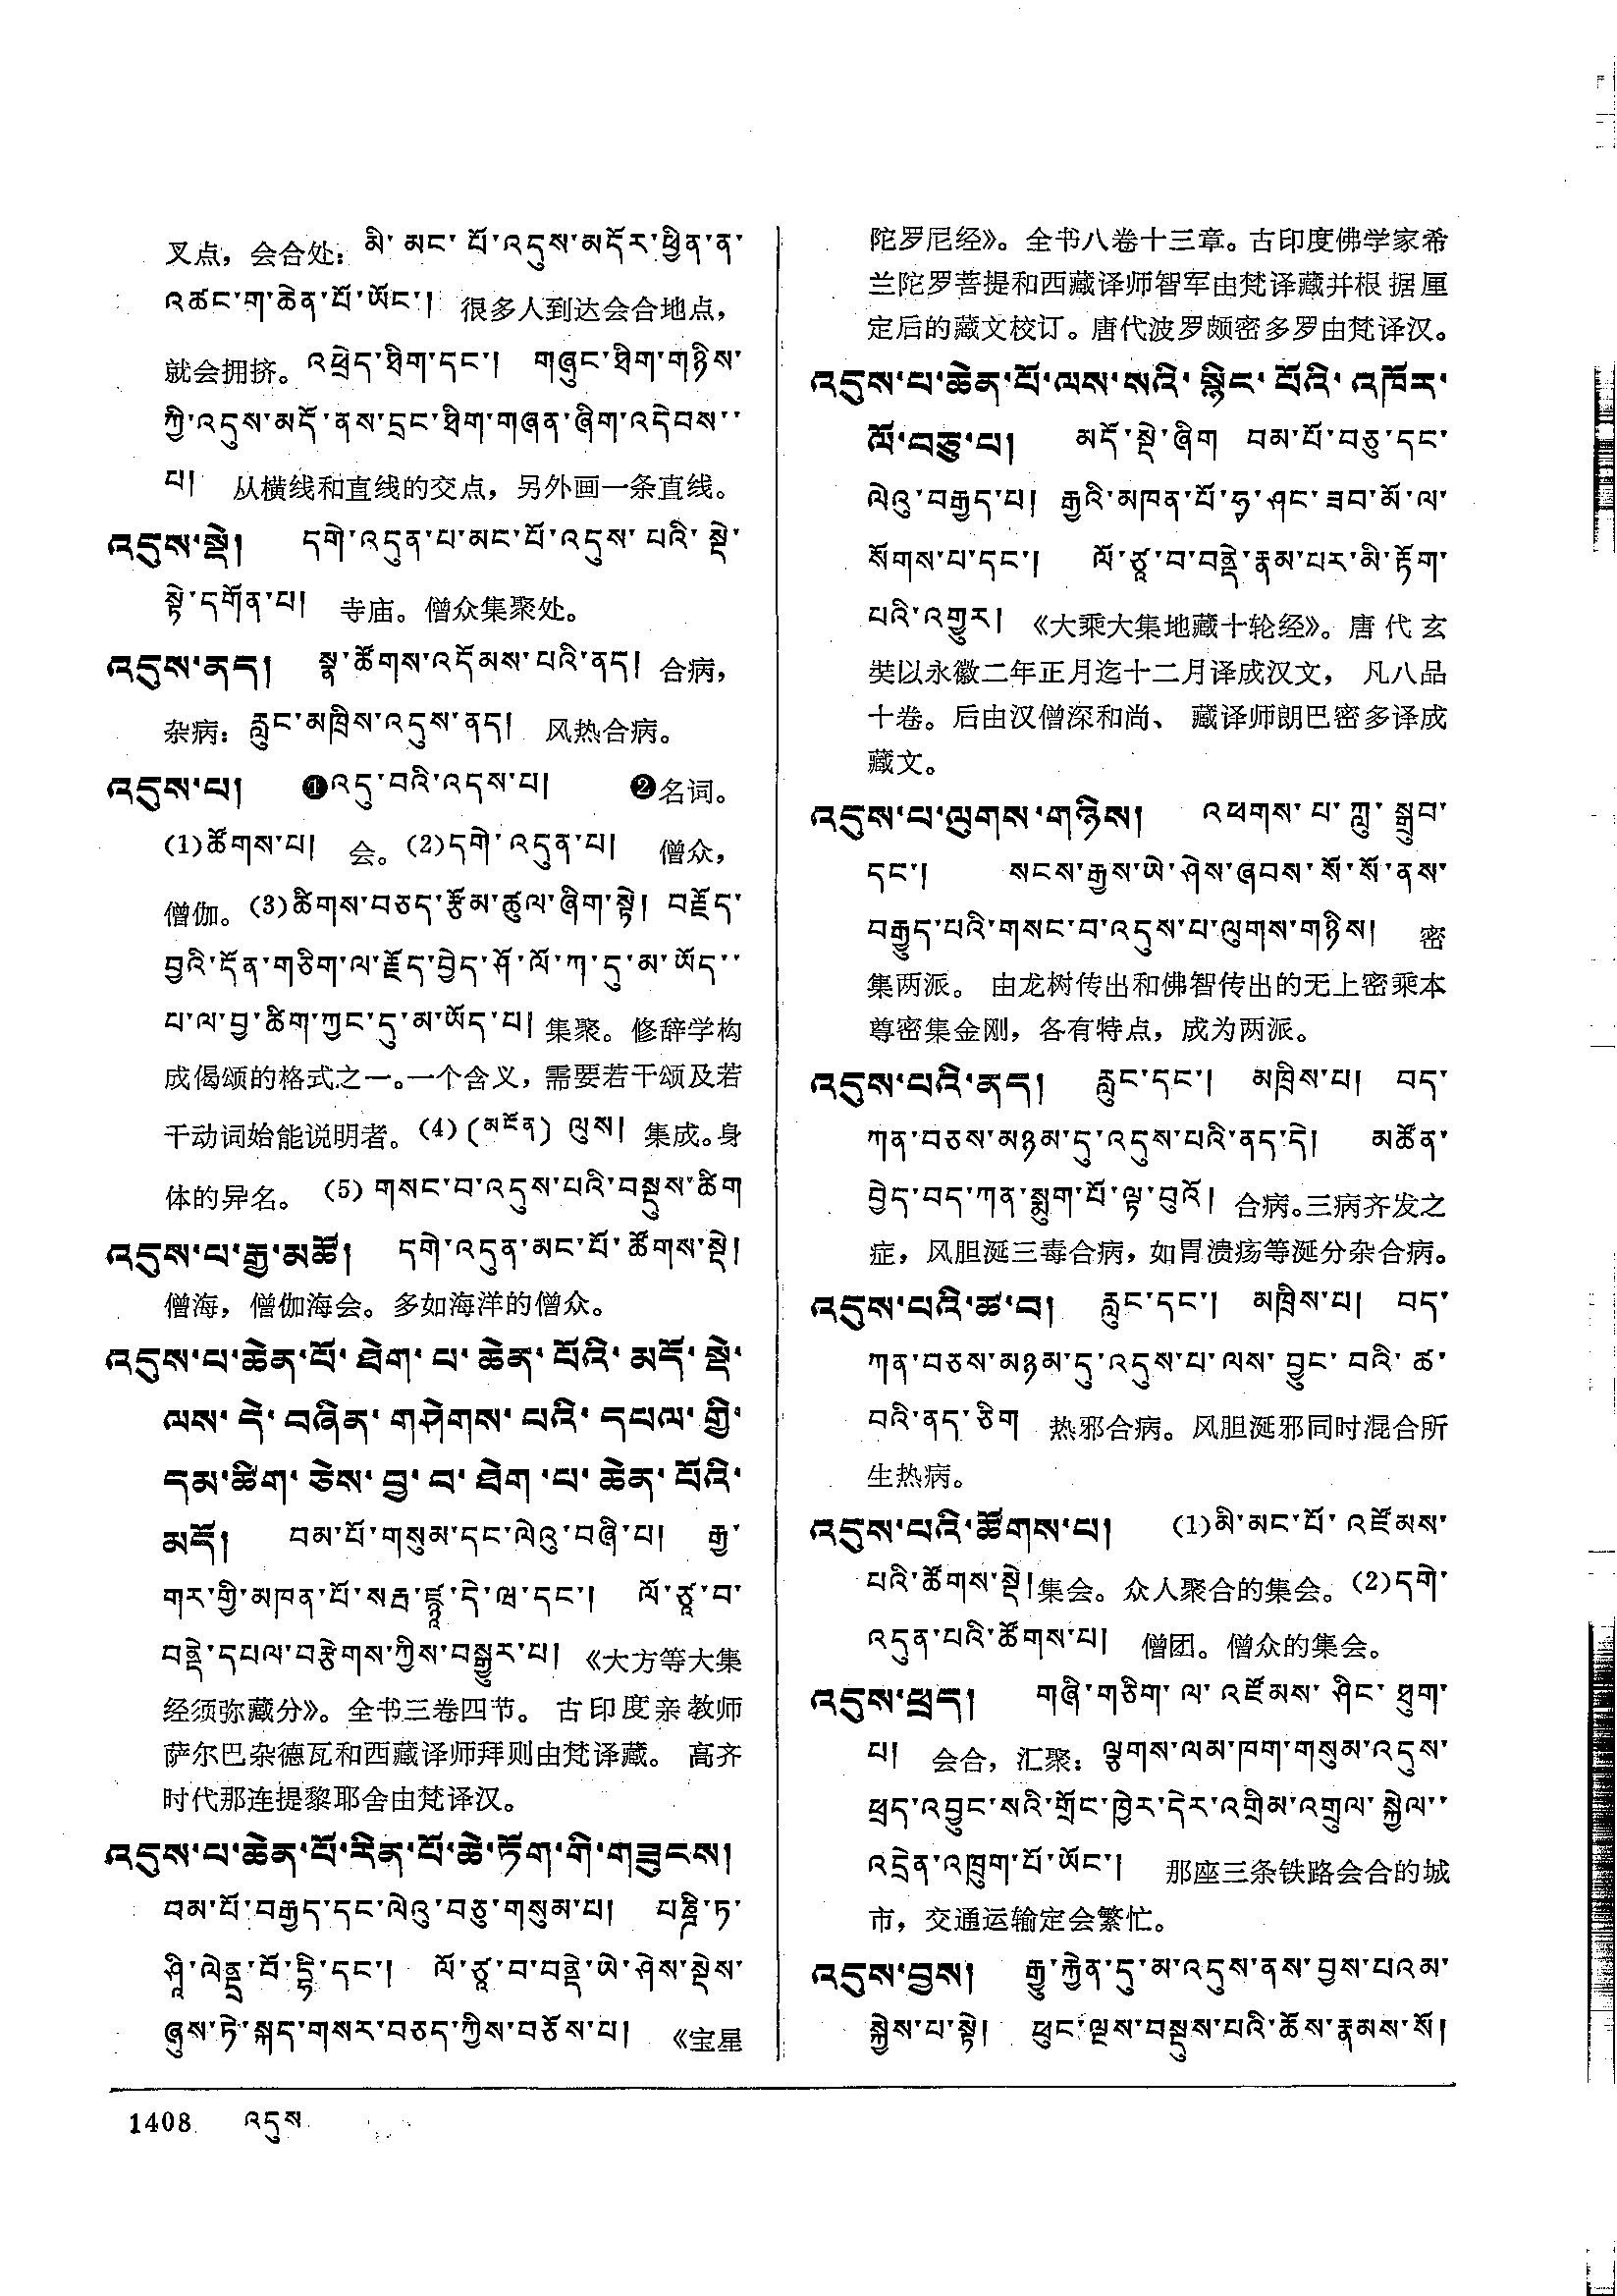 叉点，会合处：མི་མང་པོ་འདུས་མདོར་ཕྱིན་ན་
འཚང་ག་ཆེན་པོ་ཡོང་། 很多人到达会合地点，
就会拥挤。འཕྲེད་ཐིག་དང་། གཞུང་ཐིག་གཉིས་
ཀྱི་འདུས་མདོ་ནས་དྲང་ཐིག་གཞན་ཞིག་འདེབས་་
པ། 从横线和直线的交点，另外画一条直线。
འདུས་སྡེ། དགེ་འདུན་པ་མང་པོ་འདུས་པའི་སྡེ་
སྟེ་དགོན་པ། 寺庙。僧众集聚处。
འདུས་ནད། སྣ་ཚོགས་འདོམས་པའི་ནད། 合病，
杂病：རླུང་མཁྲིས་འདུས་ནད། 风热合病。
འདུས་པ། ❶འདུ་བའི་འདས་པ། ❷名词。
(1)ཚོགས་པ། 会。(2)དགེ་འདུན་པ། 僧众，
僧伽。(3)ཚིགས་བཅད་རྩོམ་ཚུལ་ཞིག་སྟེ། བརྗོད་
བྱའི་དོན་གཅིག་ལ་རྗོད་བྱེད་ཤོ་ལོ་ཀ་དུ་མ་ཡོད་་
པ་ལ་བྱ་ཚིག་ཀྱང་དུ་མ་ཡོད་པ། 集聚。修辞学构
成偈颂的格式之一。一个含义，需要若干颂及若
干动词始能说明者。(4)(མངོན) ལུས། 集成。身
体的异名。(5) གསང་བ་འདུས་པའི་བསྡུས་ཚིག
འདུས་པ་རྒྱ་མཚོ། དགེ་འདུན་མང་པོ་ཚོགས་སྡེ།
僧海，僧伽海会。多如海洋的僧众。
འདུས་པ་ཆེན་པོ་ཐེག་པ་ཆེན་པོའི་མདོ་སྡེ་
ལས་དེ་བཞིན་གཤེགས་པའི་དཔལ་གྱི་
དམ་ཚིག་ཅེས་བྱ་བ་ཐེག་པ་ཆེན་པོའི་
མདོ། བམ་པོ་གསུམ་དང་ལེའུ་བཞི་པ། རྒྱ་
གར་གྱི་མཁན་པོ་སརྦ་ཛྙཱ་དེ་ཝ་དང་། ལོ་ཙཱ་བ་
བནྡེ་དཔལ་བརྩེགས་ཀྱིས་བསྒྱུར་པ། 《大方等大集
经须弥藏分》。全书三卷四节。古印度亲教师
萨尔巴杂德瓦和西藏译师拜则由梵译藏。高齐
时代那连提黎耶舍由梵译汉。
འདུས་པ་ཆེན་པོ་རིན་པོ་ཆེ་ཏོག་གི་གཟུངས།
བམ་པོ་བརྒྱད་དང་ལེའུ་བཅུ་གསུམ་པ། པཎྜི་ཏ་
ཤཱི་ལེནྡྲ་བོ་དྷི་དང་། ལོ་ཙཱ་བ་བནྡེ་ཡེ་ཤེས་སྡེས་
ཞུས་ཏེ་སྐད་གསར་བཅད་ཀྱིས་བཅོས་པ། 《宝星
陀罗尼经》。全书八卷十三章。古印度佛学家希
兰陀罗菩提和西藏译师智军由梵译藏并根据厘
定后的藏文校订。唐代波罗颇密多罗由梵译汉。
འདུས་པ་ཆེན་པོ་ལས་སའི་སྙིང་པོའི་འཁོར་
ལོ་བཅུ་པ། མདོ་སྡེ་ཞིག བམ་པོ་བཅུ་དང་
ལེའུ་བརྒྱད་པ། རྒྱའི་མཁན་པོ་ཧྭ་ཤང་ཟབ་མོ་ལ་
སོགས་པ་དང་། ལོ་ཙཱ་བ་བནྡེ་རྣམ་པར་མི་རྟོག་
པའི་འགྱུར། 《大乘大集地藏十轮经》。唐代玄
奘以永徽二年正月迄十二月译成汉文，凡八品
十卷。后由汉僧深和尚、藏译师朗巴密多译成
藏文。
འདུས་པ་ལུགས་གཉིས། འཕགས་པ་ཀླུ་སྒྲུབ་
དང་། སངས་རྒྱས་ཡེ་ཤེས་ཞབས་སོ་སོ་ནས་
བརྒྱུད་པའི་གསང་བ་འདུས་པ་ལུགས་གཉིས། 密
集两派。由龙树传出和佛智传出的无上密乘本
尊密集金刚，各有特点，成为两派。
འདུས་པའི་ནད། རླུང་དང་། མཁྲིས་པ། བད་
ཀན་བཅས་མཉམ་དུ་འདུས་པའི་ནད་དེ། མཚོན་
བྱེད་བད་ཀན་སྨུག་པོ་ལྟ་བུའོ། 合病。三病齐发之
症，风胆涎三毒合病，如胃溃疡等涎分杂合病。
འདུས་པའི་ཚ་བ། རླུང་དང་། མཁྲིས་པ། བད་
ཀན་བཅས་མཉམ་དུ་འདུས་པ་ལས་བྱུང་བའི་ཚ་
བའི་ནད་ཅིག 热邪合病。风胆涎邪同时混合所
生热病。
འདུས་པའི་ཚོགས་པ། (1)མི་མང་པོ་འཛོམས་
པའི་ཚོགས་སྡེ།集会。众人聚合的集会。(2)དགེ་
འདུན་པའི་ཚོགས་པ། 僧团。僧众的集会。
འདུས་ཕྲད། གཞི་གཅིག་ལ་འཛོམས་ཤིང་ཐུག་
པ། 会合，汇聚：ལྕགས་ལམ་ཁག་གསུམ་འདུས་
ཕྲད་འབྱུང་སའི་གྲོང་ཁྱེར་དེར་འགྲིམ་འགྲུལ་སྐྱེལ་་
འདྲེན་འཁྲུག་པོ་ཡོང་། 那座三条铁路会合的城
市，交通运输定会繁忙。
འདུས་བྱས། རྒྱུ་རྐྱེན་དུ་མ་འདུས་ནས་བྱས་པའམ་
སྐྱེས་པ་སྟེ། ཕུང་ལྔས་བསྡུས་པའི་ཆོས་རྣམས་སོ།
1408 འདུས